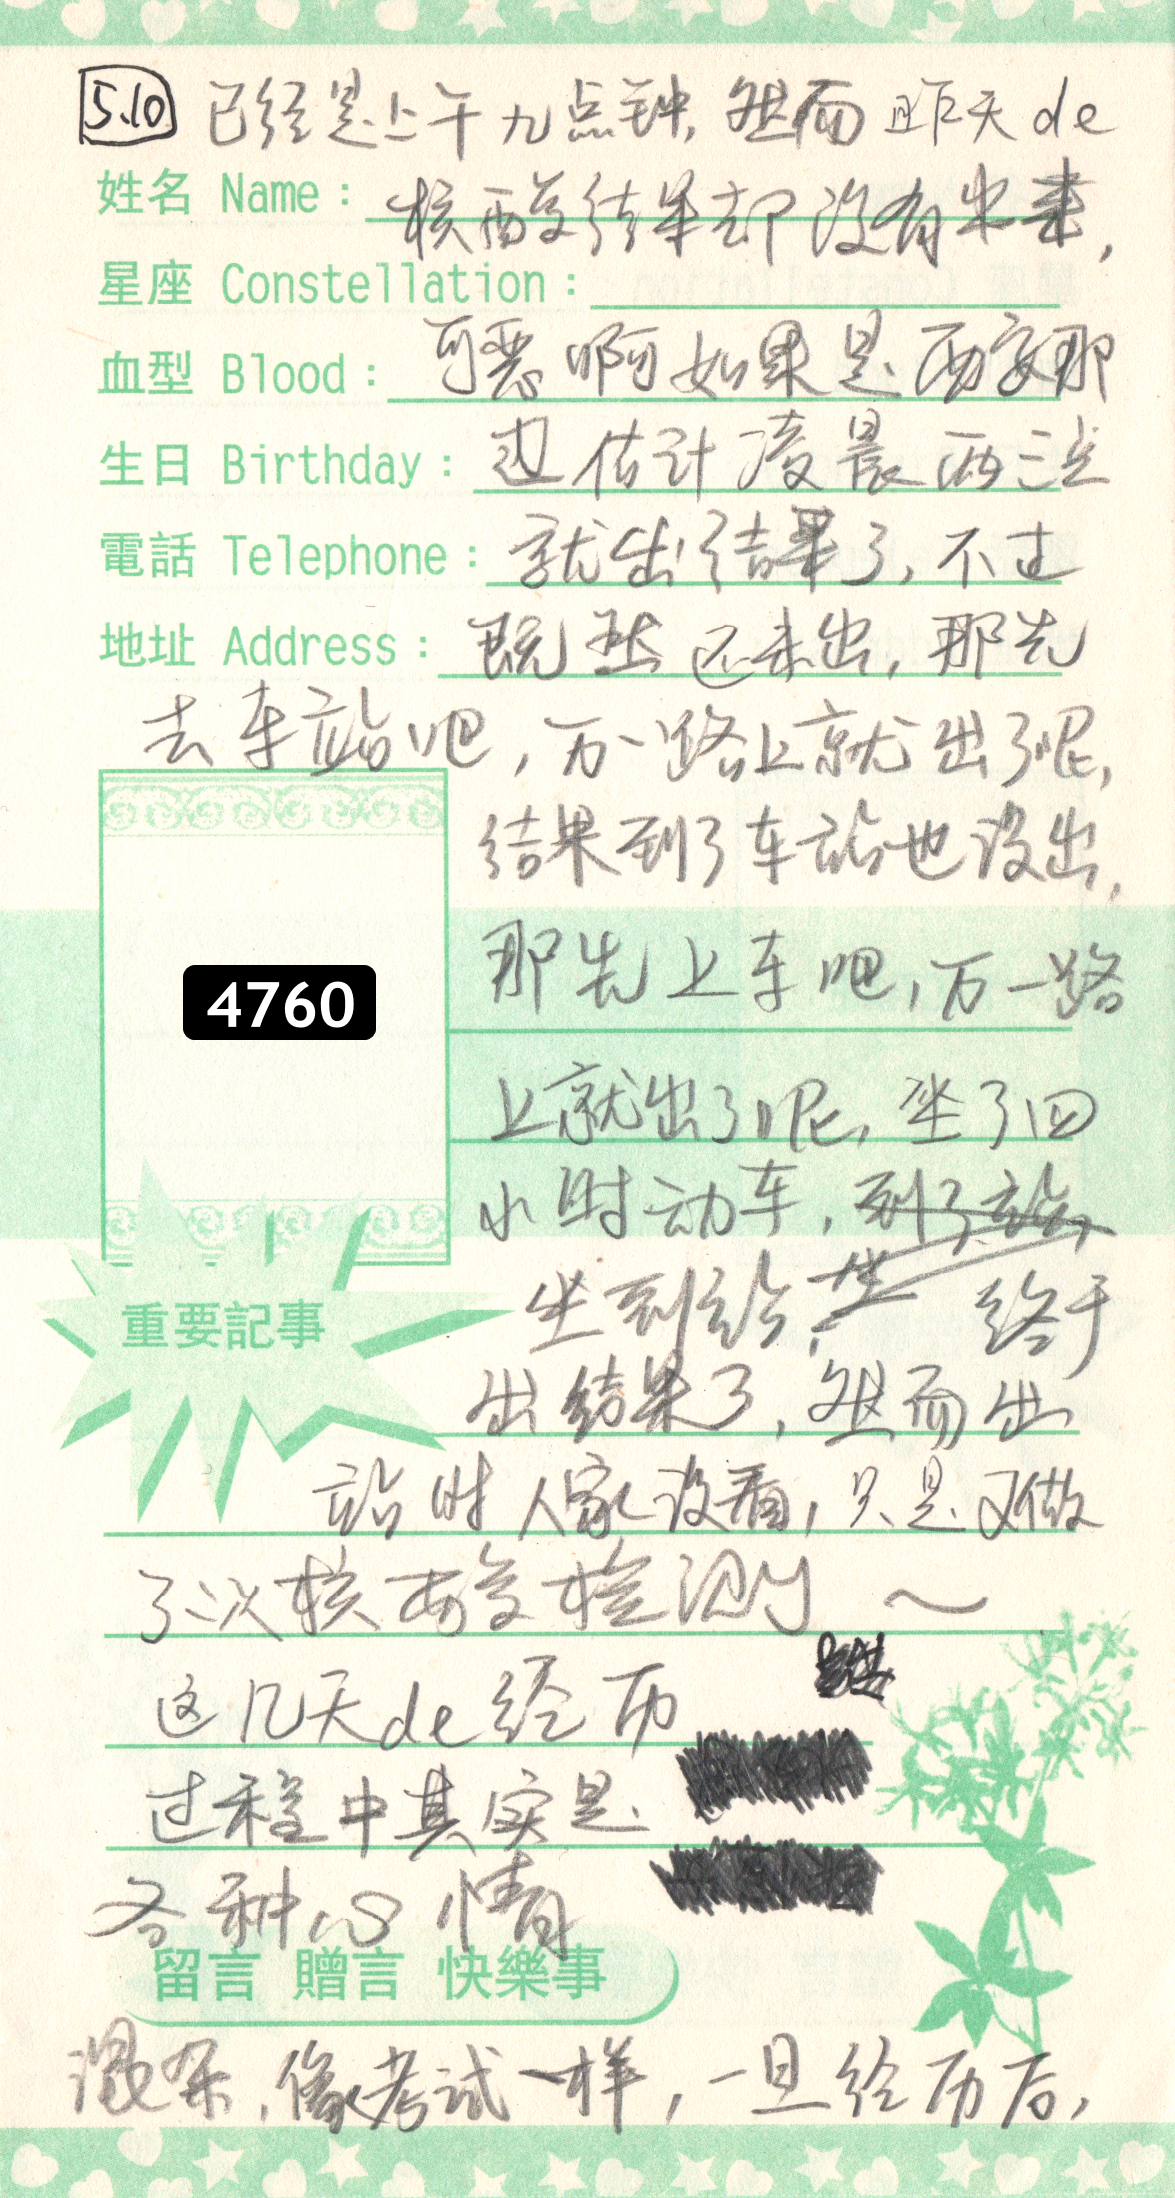 5.10 已经是上午九点钟,然而昨天de
姓名 Name: 核酸结果却没有出来,
星座 Constellation:
血型 Blood: 可恶啊如果是西安那
生日 Birthday: 边估计凌晨两三点
電話 Telephone: 就出结果了,不过
地址 Address: 既然还未出,那先
去车站吧,万一路上就出了呢,
结果到了车站也没出,
那先上车吧,万一路
4760
上就出了呢,坐了四
小时动车,到了站
坐到站, 终于
重要記事
出结果了,然而出
站时人家没看,只是又做
了次核酸检测~
这几天de经历
过程中其实是
各种心情
留言 贈言 快樂事
混杂,像考试一样,一旦经历后,